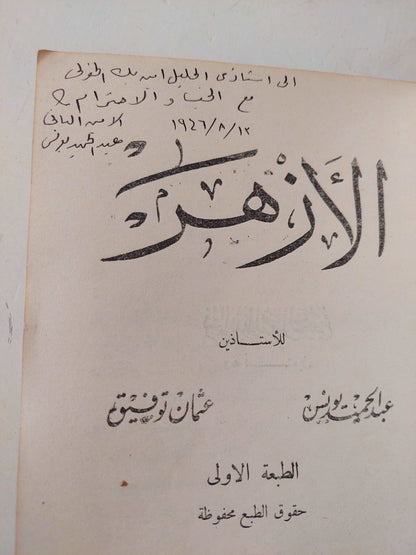 الى استاذى الجليل امين بك الخولى
مع الحب والاحترام
١٩٤٦/٨/١٢
عبد الحميد يونس
الأزهر
للأستاذين
عبد الحميد يونس
عثمان توفيق
الطبعة الاولى
حقوق الطبع محفوظة